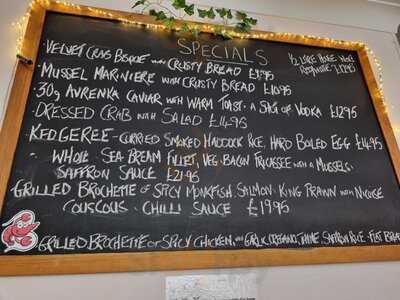 SPECIALS
VELVET CRAB BISQUE WITH CRUSTY BREAD
MUSSEL MARINIERE WITH CRUSTY BREAD £10.95
30g AVRENKA CAVIAR WITH WARM TOAST + A SHOT OF VODKA
DRESSED CRAB WITH SALAD £14.95
KEDGEREE - CURRIED SMOKED HADDOCK RICE, HARD BOILED EGG £14.95
WHOLE SEA BREAM FILLET, VEG. BACON FRICASSEE WITH MUSSELS.
SAFFRON SAUCE £21.95
GRILLED BROCHETTE OF SPICY MONKFISH, SALMON, KING PRAWN WITH NICOISE
COUSCOUS. CHILLI SAUCE £19.95
GRILLED BROCHETTE OF SPICY CHICKEN, GARLIC, OREGANO, THYME, SAFFRON RICE - FLAT BREAD